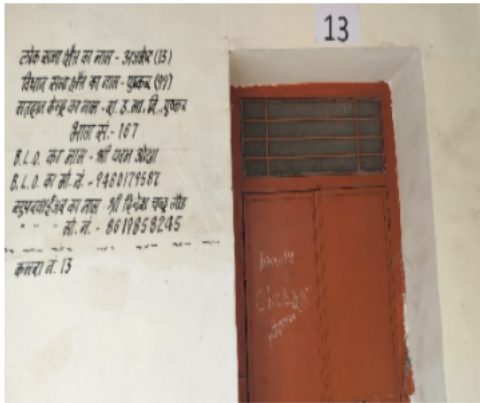 13
लोक सभा क्षेत्र का नाम - अजमेर (13)
विधान सभा क्षेत्र का नाम - पुष्कर (99)
मतदान केन्द्र का नाम - रा. उ. मा. वि. पुष्कर
भाग सं. - 167
B.L.O. का नाम - श्री पदम ओझा
B.L.O. का मो. नं. - 9460179587
सुपरवाईजर का नाम - श्री दिनेश चन्द्र गौड
" " मो. नं. - 8619858245
कमरा नं. 13